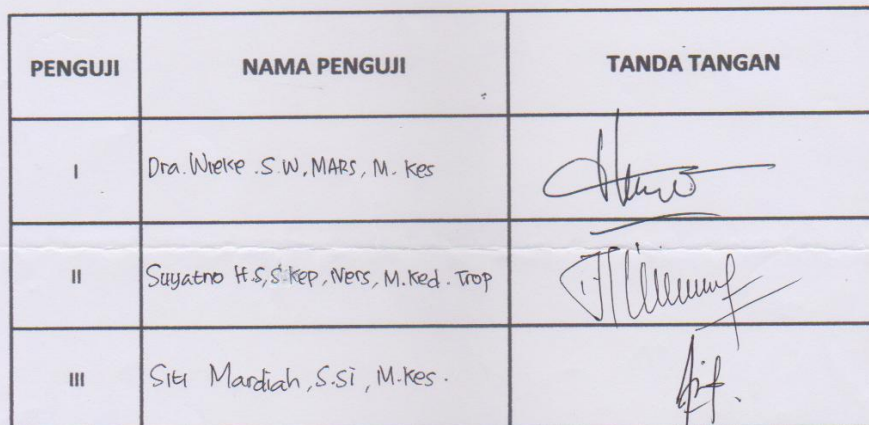 PENGUJI NAMA PENGUJI TANDA TANGAN
I Dra. Wieke .S.W, MARS, M. Kes
II Suyatno H.S, S.Kep, Ners, M.Ked. Trop
III Siti Mardiah, S.Si, M.Kes.